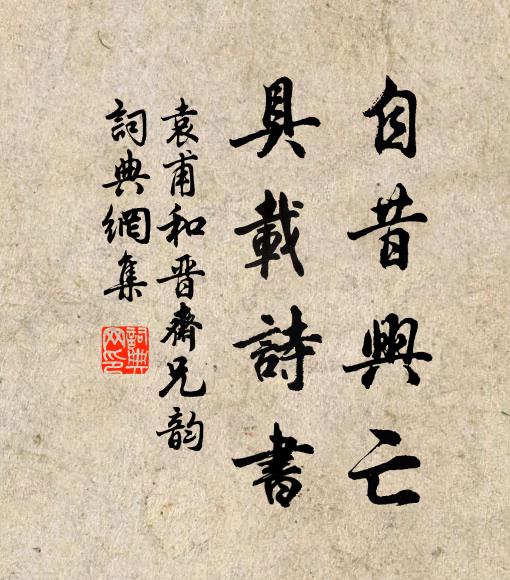 自昔興亡
具載詩書
袁甫和晋齋兄韵
詞典網集
詞典網印